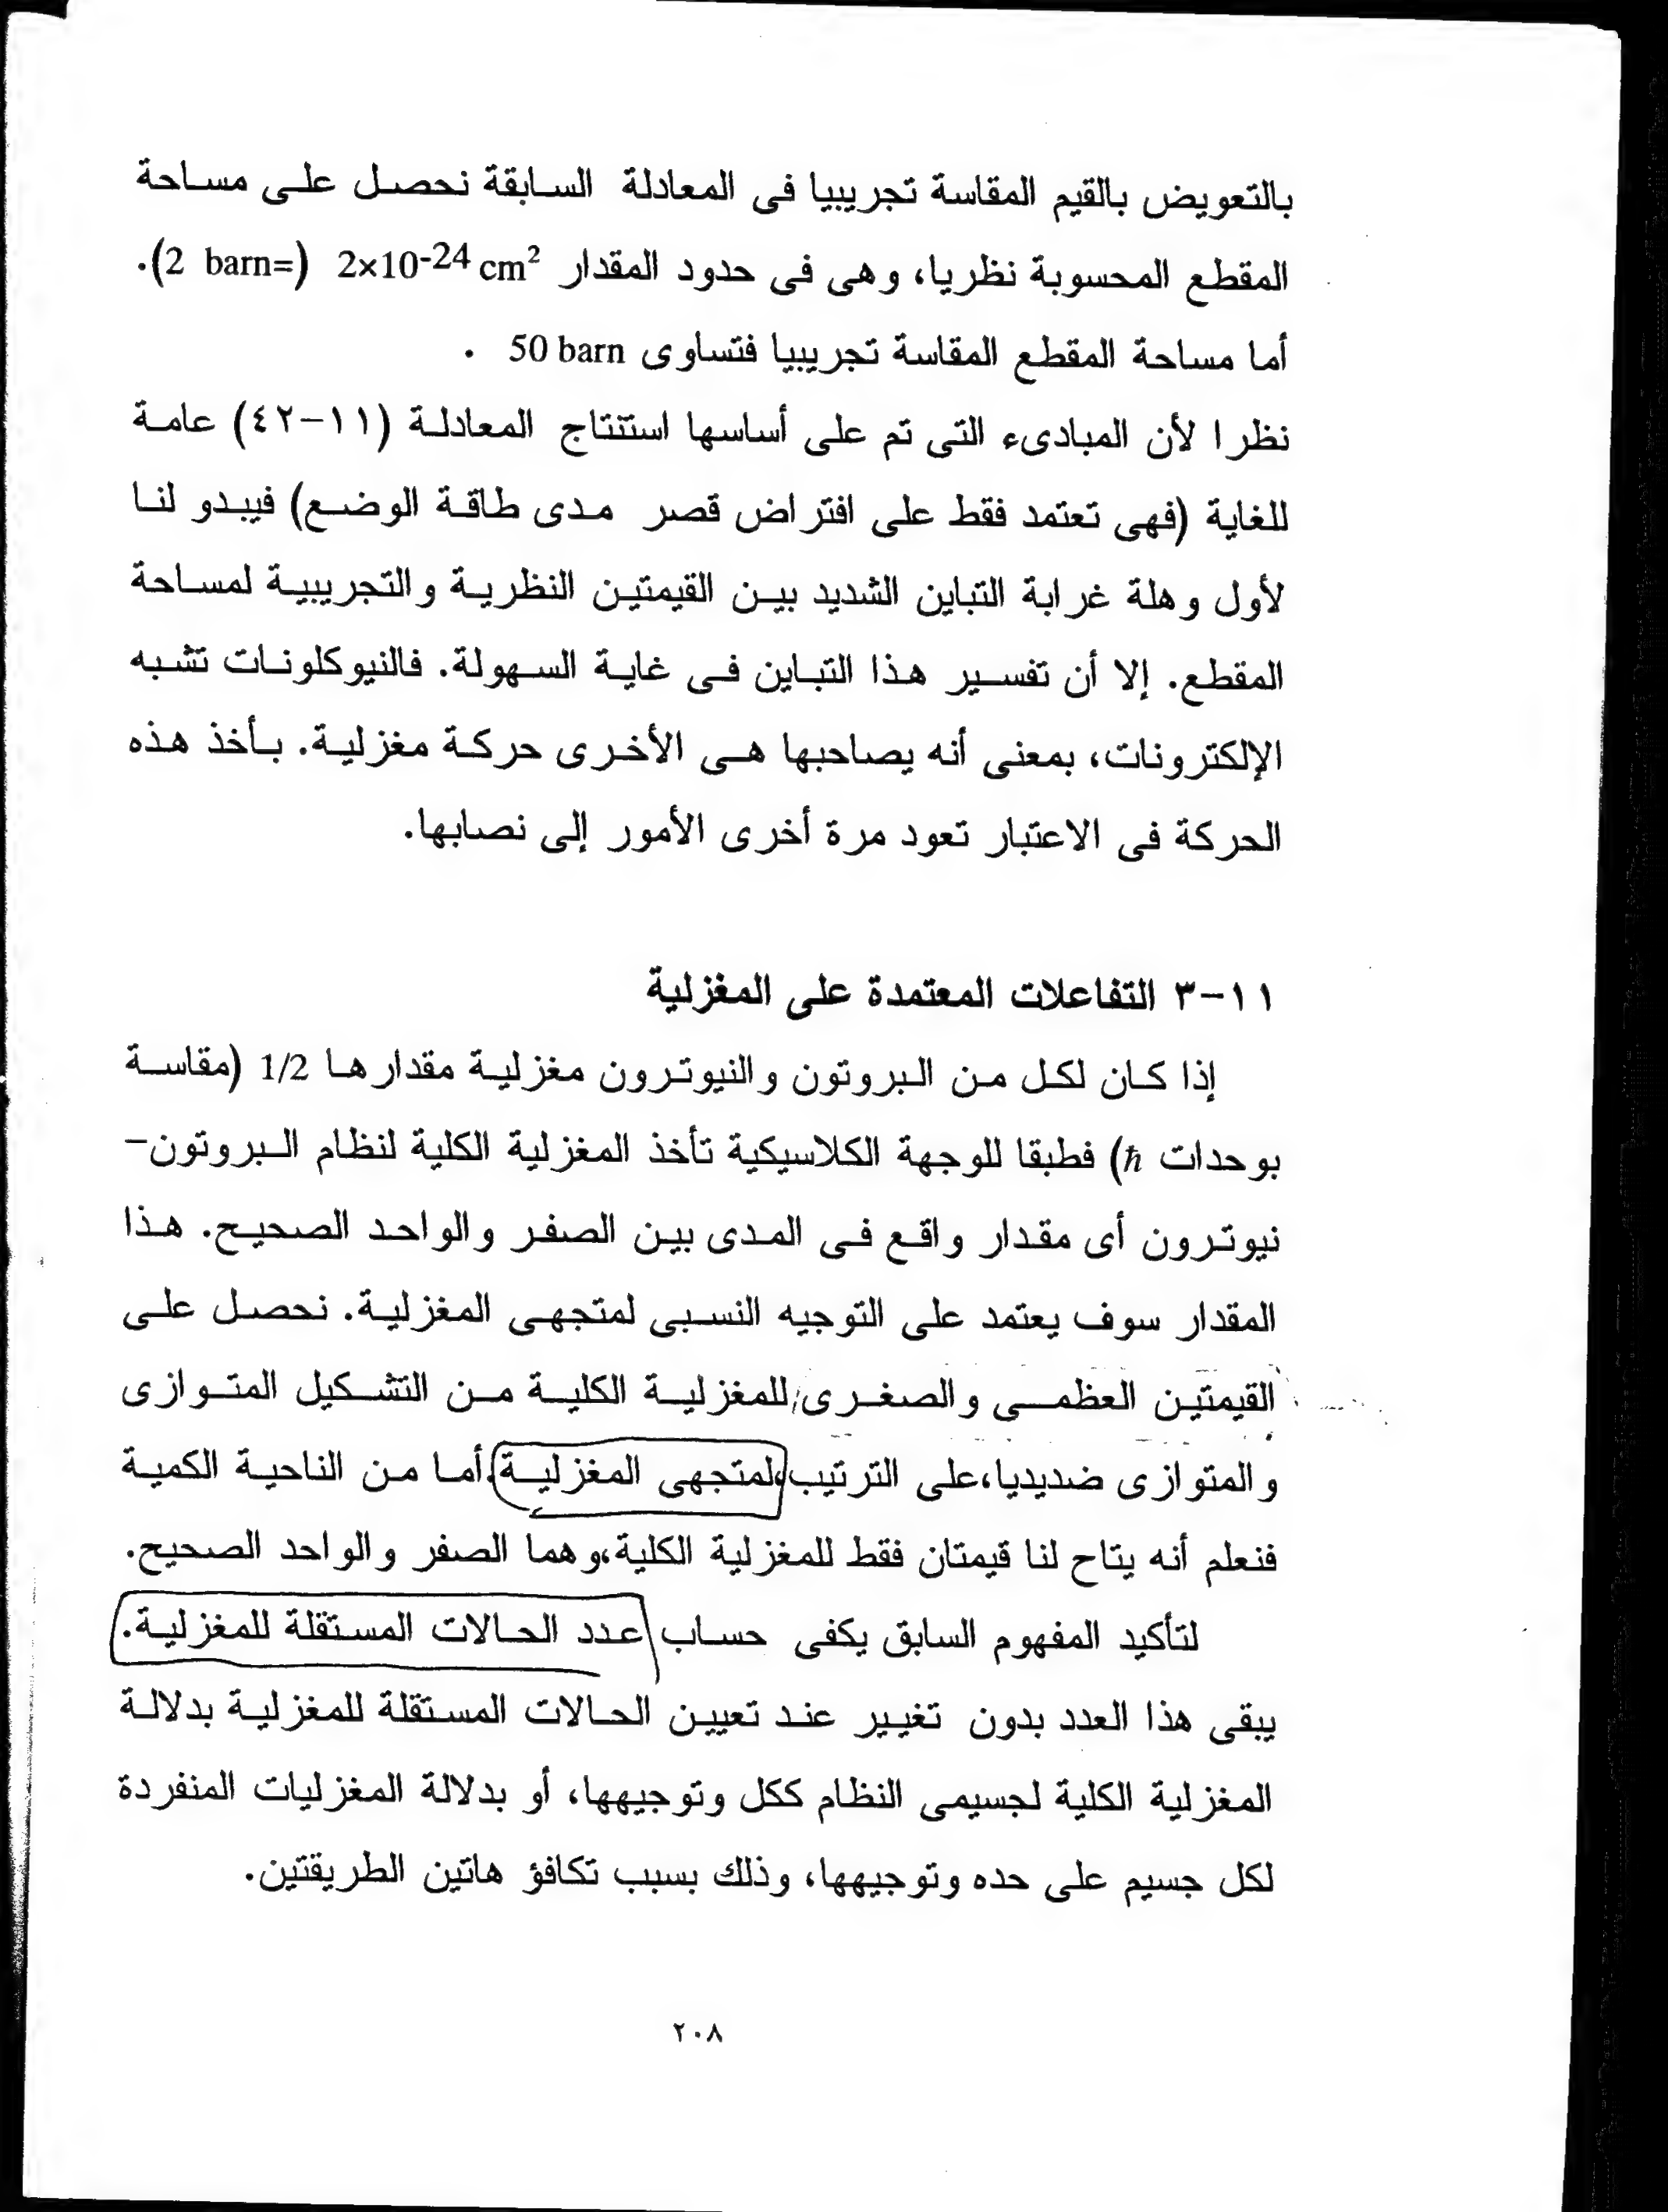 بالتعويض بالقيم المقاسة تجريبيا فى المعادلة السابقة نحصل على مساحة
المقطع المحسوبة نظريا، وهى فى حدود المقدار 2×10-24 cm² (=2 barn).
أما مساحة المقطع المقاسة تجريبيا فتساوى 50 barn .
نظرا لأن المبادىء التى تم على أساسها استنتاج المعادلة (١١-٤٢) عامة
للغاية (فهى تعتمد فقط على افتراض قصر مدى طاقة الوضع) فيبدو لنا
لأول وهلة غرابة التباين الشديد بين القيمتين النظرية والتجريبية لمساحة
المقطع. إلا أن تفسير هذا التباين فى غاية السهولة. فالنيوكلونات تشبه
الإلكترونات، بمعنى أنه يصاحبها هى الأخرى حركة مغزلية. بأخذ هذه
الحركة فى الاعتبار تعود مرة أخرى الأمور إلى نصابها.
١١-٣ التفاعلات المعتمدة على المغزلية
إذا كان لكل من البروتون والنيوترون مغزلية مقدارها 1/2 (مقاسة
بوحدات ħ) فطبقا للوجهة الكلاسيكية تأخذ المغزلية الكلية لنظام البروتون-
نيوترون أى مقدار واقع فى المدى بين الصفر والواحد الصحيح. هذا
المقدار سوف يعتمد على التوجيه النسبى لمتجهى المغزلية. نحصل على
القيمتين العظمى والصغرى للمغزلية الكلية من التشكيل المتوازى
والمتوازى ضديديا،على الترتيب،لمتجهى المغزلية.أما من الناحية الكمية
فنعلم أنه يتاح لنا قيمتان فقط للمغزلية الكلية،وهما الصفر والواحد الصحيح.
لتأكيد المفهوم السابق يكفى حساب عدد الحالات المستقلة للمغزلية.
يبقى هذا العدد بدون تغيير عند تعيين الحالات المستقلة للمغزلية بدلالة
المغزلية الكلية لجسيمى النظام ككل وتوجيهها، أو بدلالة المغزليات المنفردة
لكل جسيم على حده وتوجيهها، وذلك بسبب تكافؤ هاتين الطريقتين.
٢٠٨